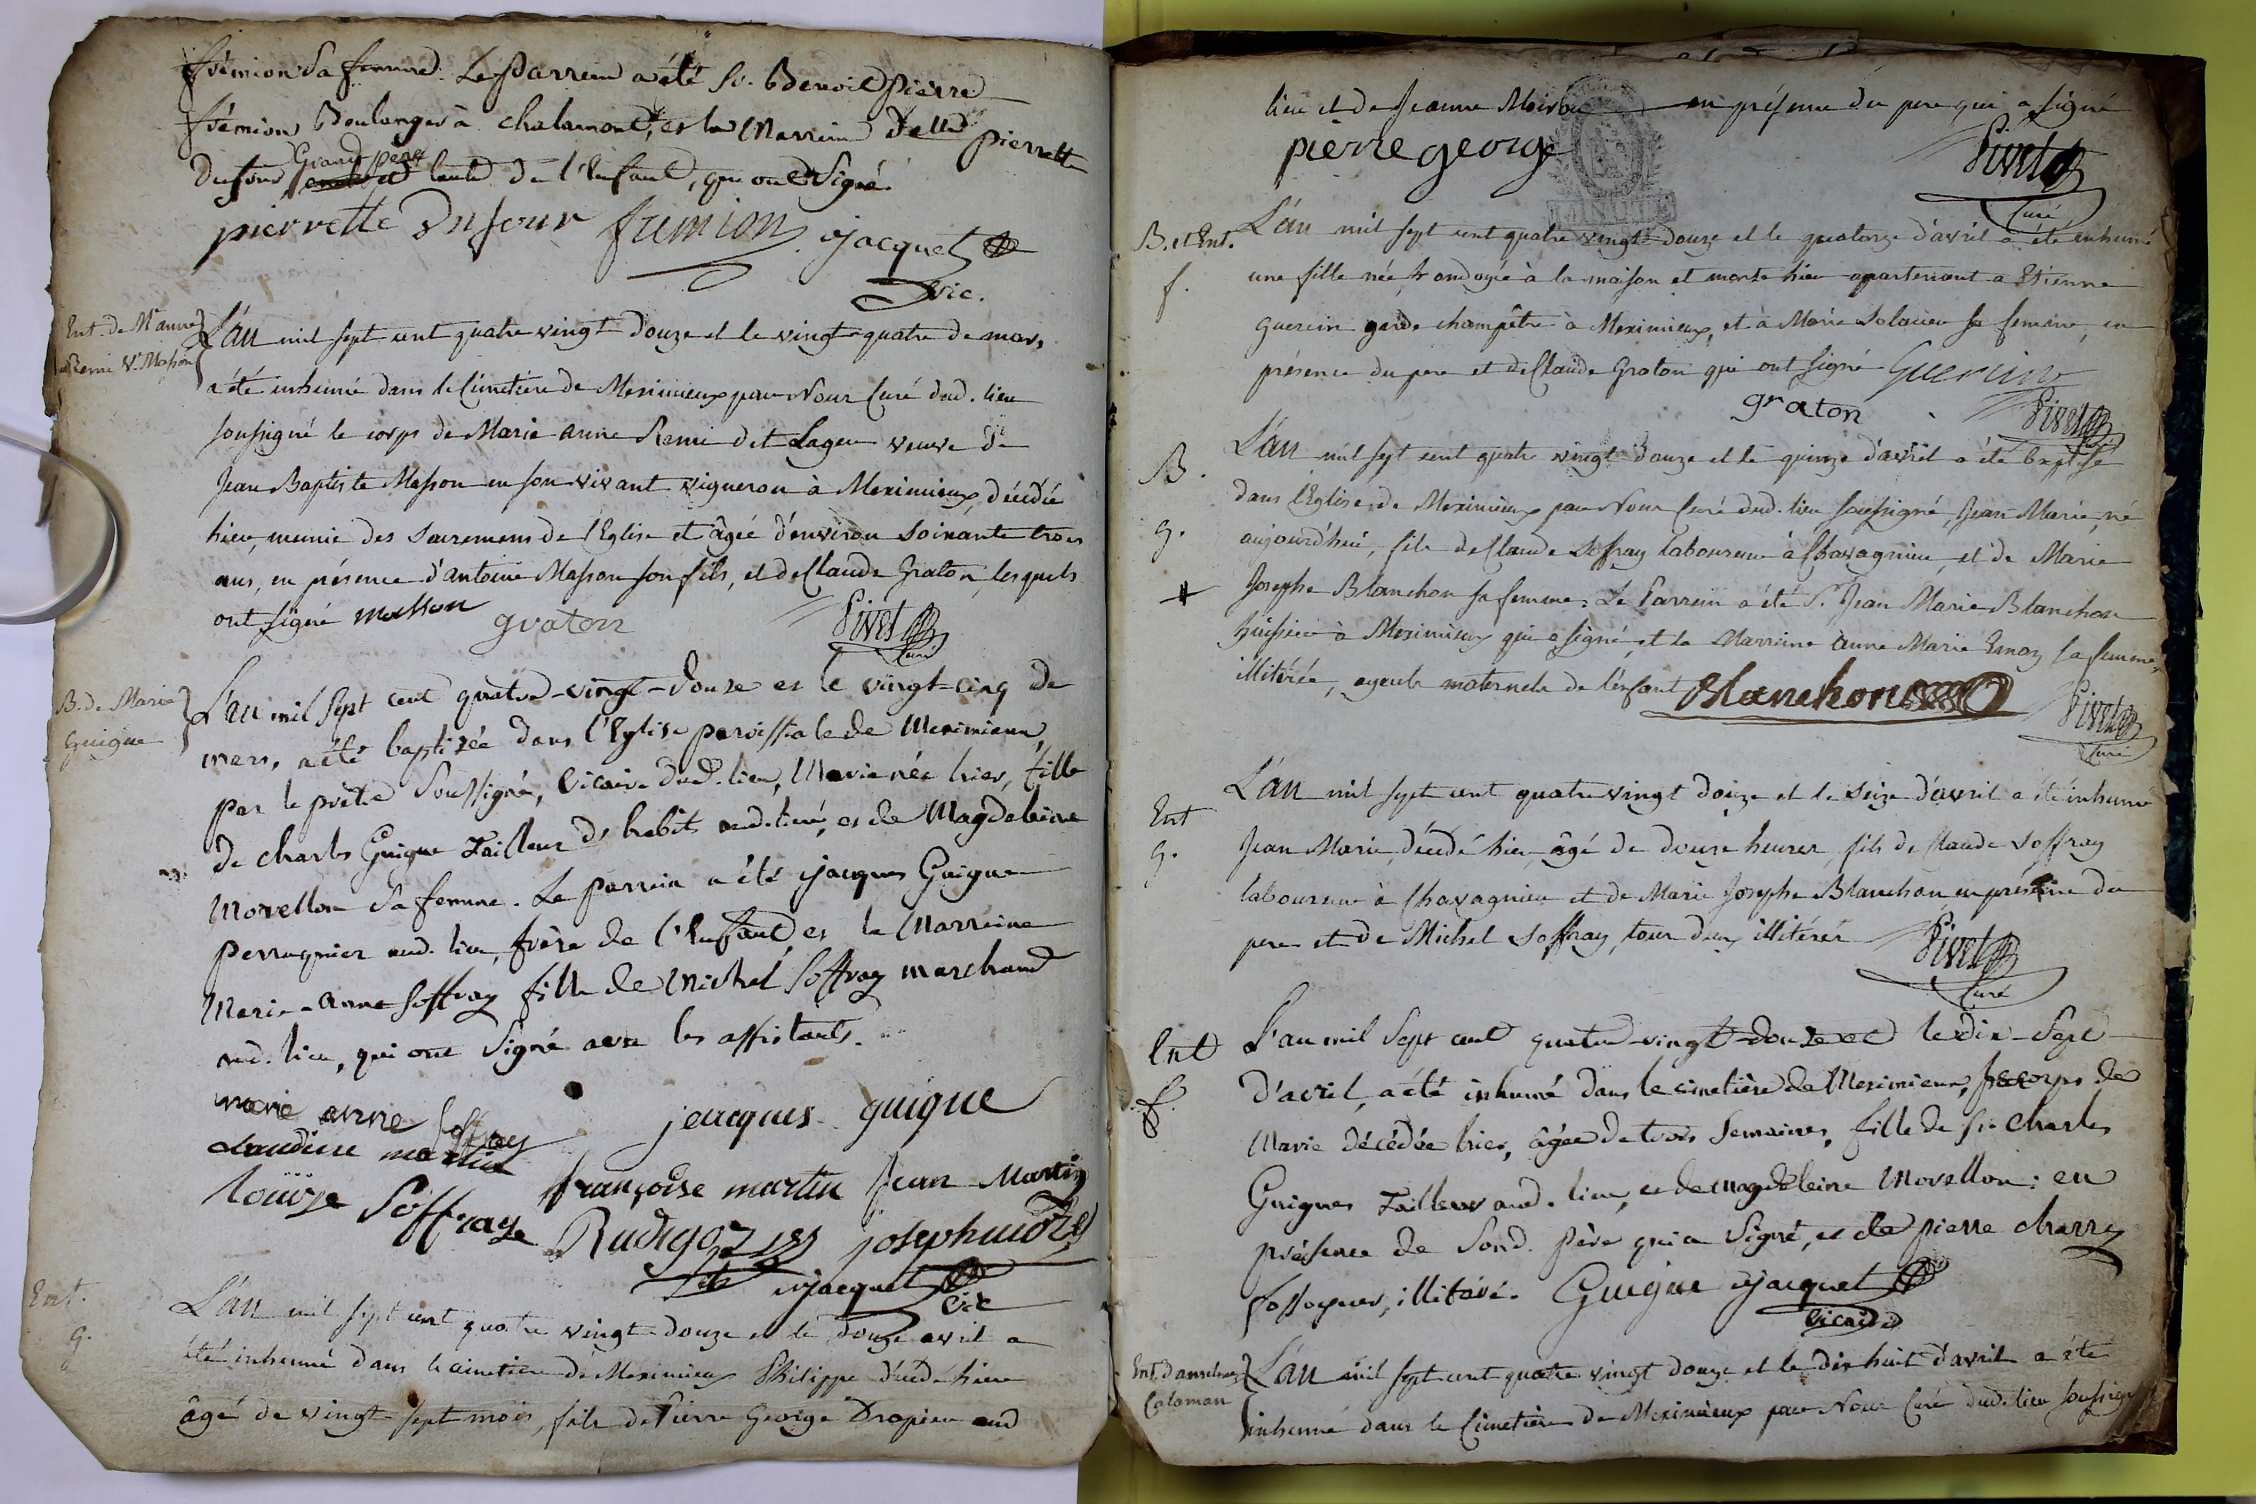 frémion sa femme. Le Parrein a été Sr. Benoit Pierre
frémion Boulanger à chalamont, et la Marreine Delle pierrette
Grand père
dufour tante de l'Enfant, qui ont Signé.
pierrette Dufour fremion jacquet
vic.
Ent. de Me anne
Remi Ve Masson
L'an mil sept cent quatre vingt douze et le vingt-quatre de mars,
a été inhumé dans le Cimetière de Meximieux par Nous Curé dud. lieu
soussigné le corps de Marie anne Remi dit Lageu veuve de
Jean Baptiste Masson en son vivant vigneron à Meximieux, décédée
hier, munie des Sacremens de l'Eglise et âgée d'environ Soixante trois
ans, en présence d'antoine Masson son fils, et de Claude Graton, lesquels
ont signé masson graton Pivet
Curé
B. de Marie
Guigue
L'an mil Sept cent quatre-vingt-douze et le vingt-cinq de
mars, a été baptisée dans l'Eglise paroissiale de Meximieux,
par le prêtre Soussigné, Vicaire dud. lieu, Marie née hier, fille
de charles Guigue Tailleur d'habits aud. lieu, et de Magdeleine
Morellon Sa femme. Le parrein a été jacques Guigue
perruquier aud. lieu, frère de l'Enfant et la Marreine
Marie-anne Soffray fille de Michel Soffray marchand
aud. lieu, qui ont Signé avec les assistants.
marie anne soffray jacques guigue
claudine martin
louise Soffraye françoise martin Jean Martin
Rudigoz joseph
jacquet
vic
Ent.
g.
L'an mil sept cent quatre vingt douze et le douze avril a
été inhumé dans le cimetiere de Meximieux Philippe décédé hier
âgé de vingt-sept mois, fils de Pierre George Drapier aud
lieu et de Jeanne en présence du pere qui a signé
pierre george Pivet
Curé
B. et Ent.
f.
L'an mil sept cent quatre vingt-douze et le quatorze d'avril a été inhumé
une fille née, & ondoyée à la maison et morte hier appartenant a Etienne
Guercin garde champêtre à Meximieux, et à Marie Solacien sa femme, en
présence du pere et de Claude Graton qui ont signé Guercin
graton Pivet
B.
g.
L'an mil sept cent quatre vingt douze et le quinze d'avril a été baptisé
dans l'Eglise de Meximieux par Nous Curé dud. lieu soussigné, Jean Marie, né
aujourd'hui, fils de Claude Soffray laboureur à Chavagnieu, et de Marie
Josephe Blanchon sa femme. Le Parrein a été Sr. Jean Marie Blanchon
huissier à Meximieux qui a signé, et la Marreine anne Marie Emoz sa femme,
illitérée, ayeule maternele de l'enfant Blanchon Pivet
Curé
Ent
g.
L'an mil sept cent quatre vingt douze et le seize d'avril a été inhumé
Jean Marie, décédé hier, âgé de douze heures, fils de Claude Soffray
laboureur à Chavagnieu et de Marie Josephe Blanchon en présence du
pere et de Michel Soffray, tous deux illitérés Pivet
Curé
Ent
f.
L'an mil Sept cent quatre-vingt-douze et le dix-Sept
d'avril, a été inhumé dans le cimetière de Meximieux, le corps de
Marie décédée hier, âgée de trois Semaines, fille de Sr. Charles
Guigues Tailleur aud. lieu, et de magdeleine Morellon: en
présence de Sond. père qui a Signé, et de pierre charry
fossoyeur, illitéré. Guigue jacquet
Vicaire
Ent. d'anselme
Caloman
L'an mil sept cent quatre vingt douze et le dix huit d'avril a été
inhumé dans le Cimetière de Meximieux par Nous Curé dud. lieu soussigné